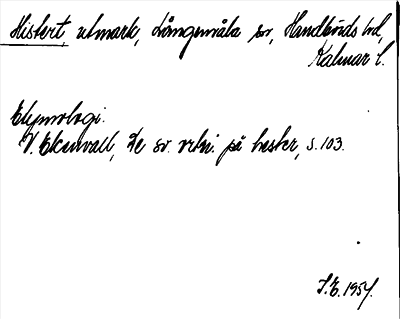 Histert, utmark, Långemåla sn, Handbörds hd,
Kalmar l.
Etymologi.
V. Ekenvall, De sv. ortn. på hester, s. 103.
S.E. 1957.